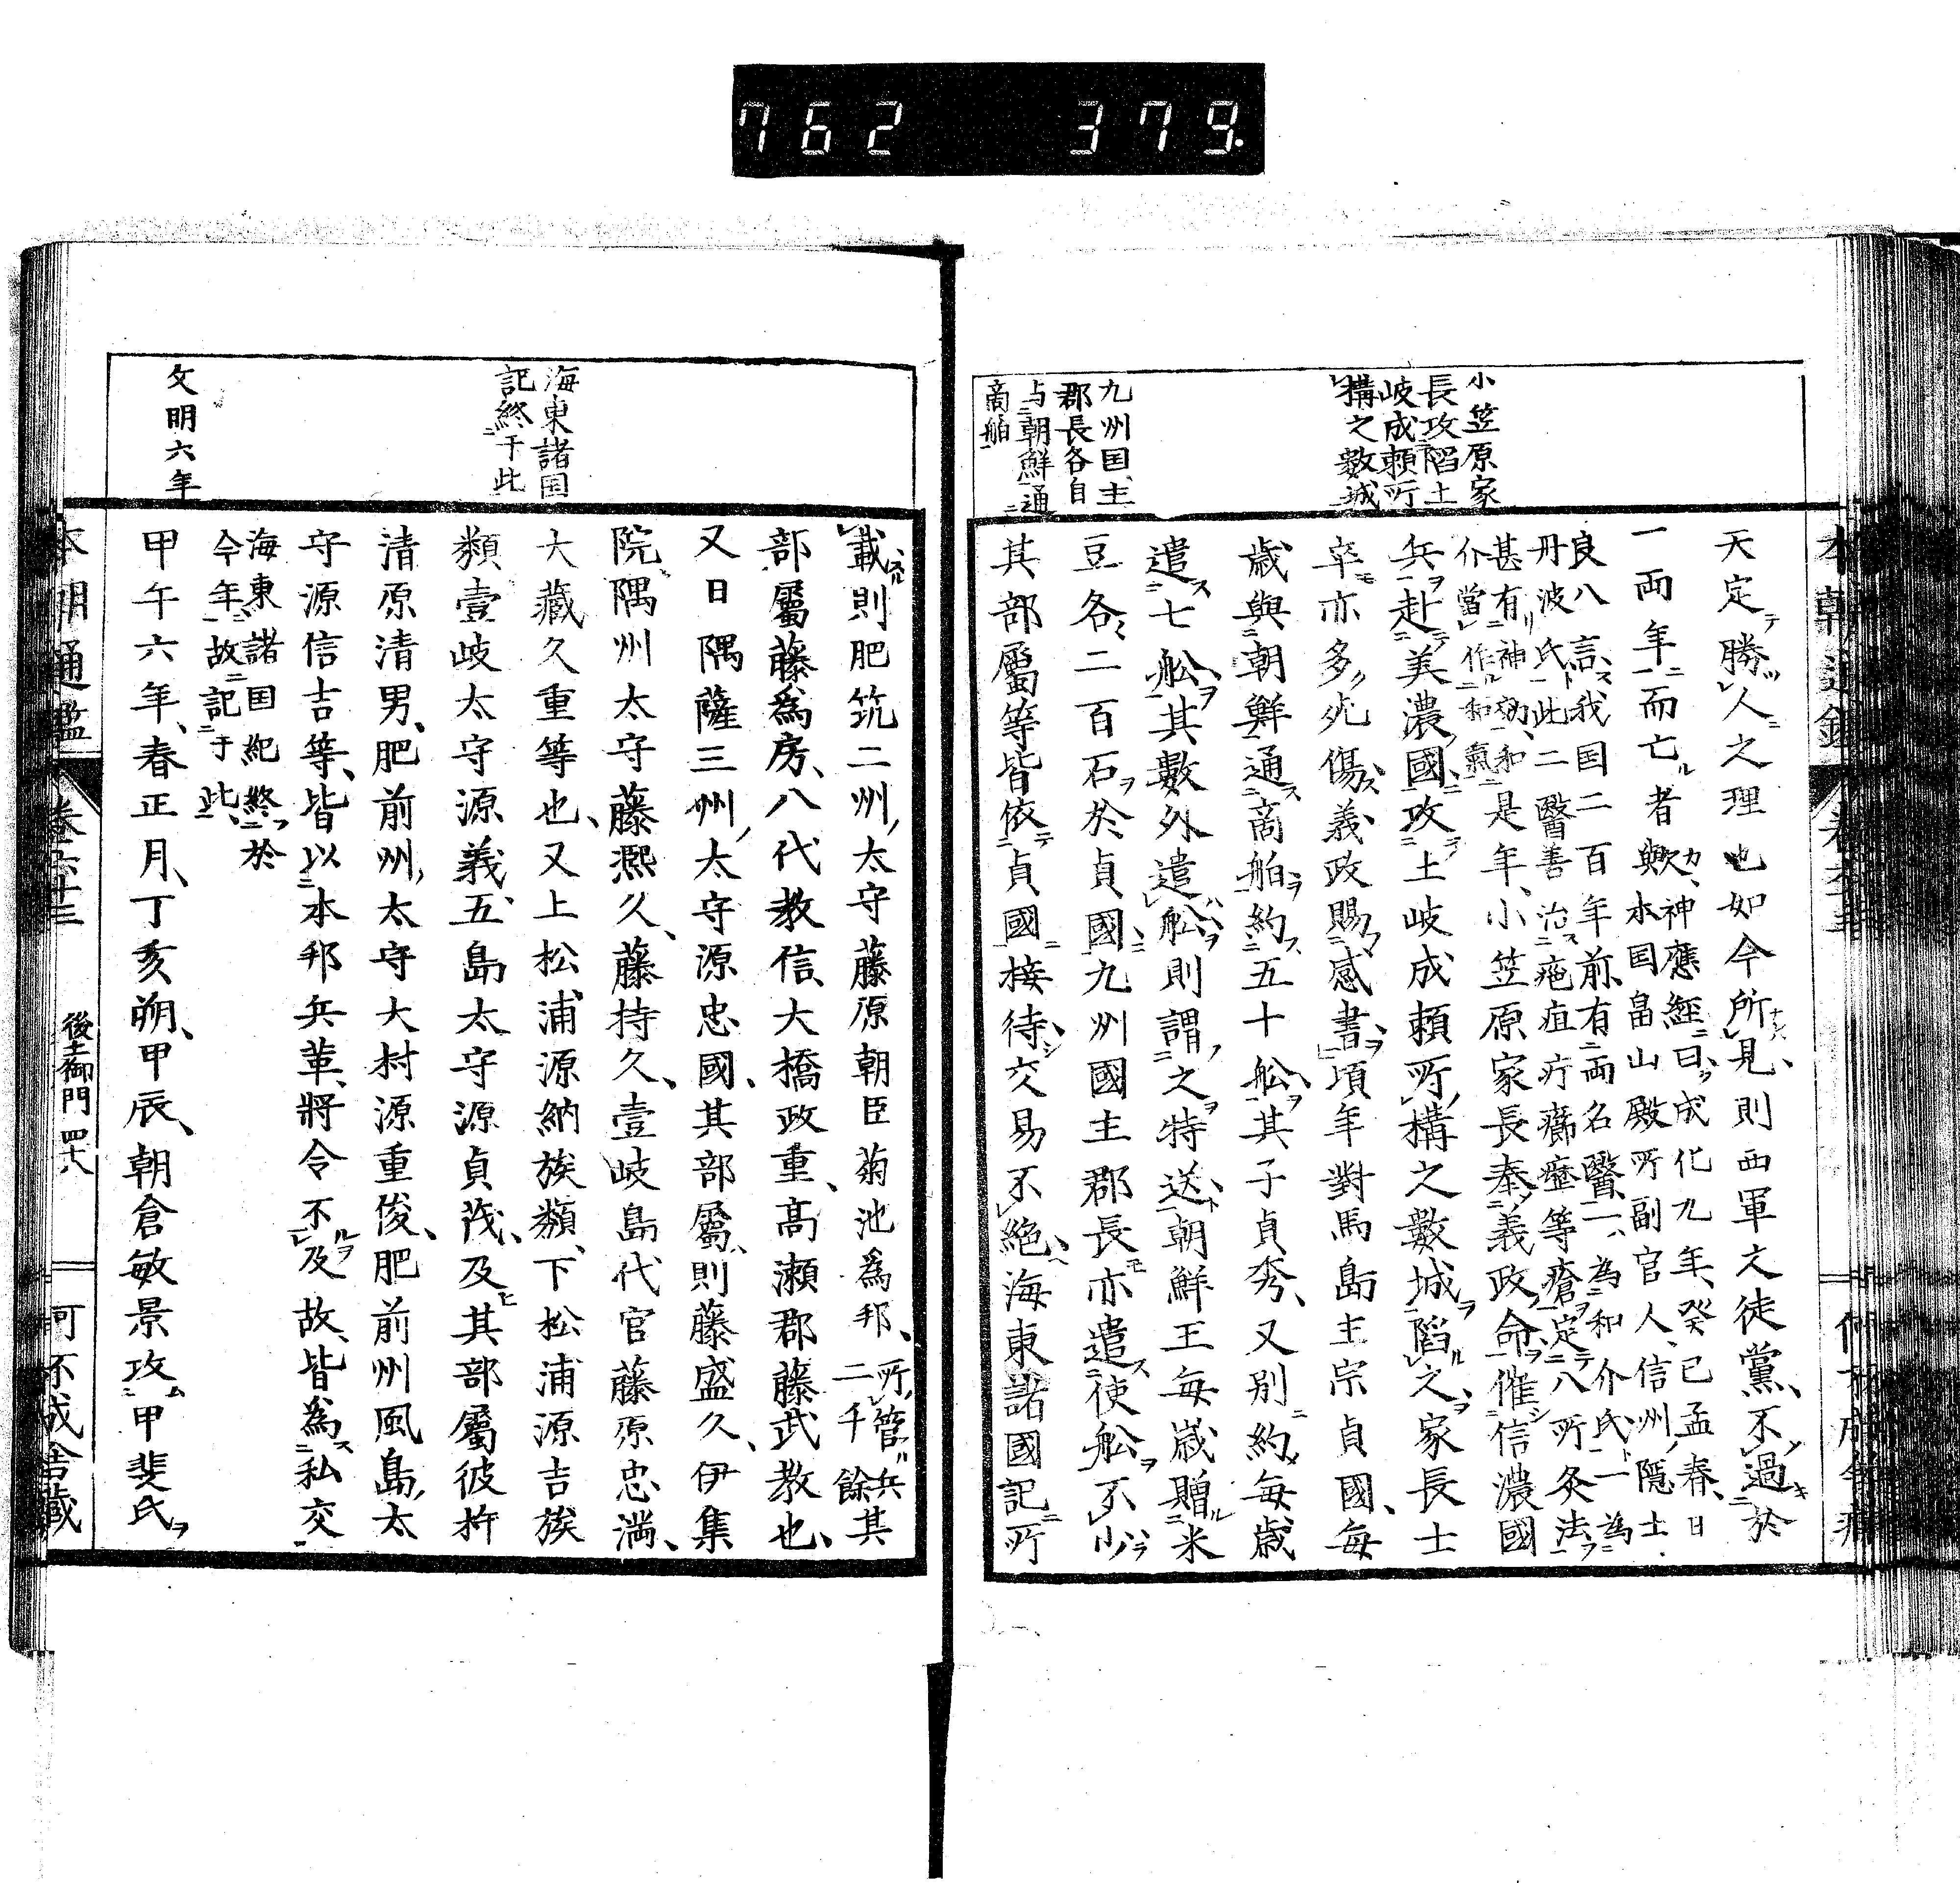 762 379.
小笠原家
長攻陷土
岐成頼所
構之數城
九州国主
郡長各自
与朝鮮通
商舶
天定勝人之理也如今所見則西軍文徒黨不過於
一両年而亡者歟神應經曰成化九年癸已孟春日
本国畠山殿所副官人信州隱士
良心言我国二百年前有両名醫一為和介氏一為
丹波氏此二醫善治疱疽疔癤瘂等瘡定八所灸法
甚有神効和介當作和氣
是年小笠原家長奉義政命催信濃國
兵赴美濃國攻土岐成頼所構之數城陷之家長士
卒亦多死傷義政賜感書頃年對馬島主宗貞國毎
歳與朝鮮通商舶約五十舩其子貞秀又別約毎歳
遣七舩其數外遣舩則謂之特送朝鮮王毎歳贈米
豆各二百石於貞國九州國主郡長亦遣使舩不少
其部屬等皆依貞國接待交易不絶海東諸國記所
海東諸国
記終于此
文明六年
載則肥筑二州太守藤原朝臣菊池為邦所管兵二千餘其
部屬藤為房八代教信大橋政重髙瀬郡藤武教也
又日隅薩三州太守源忠國其部屬則藤盛久伊集
院隅州太守藤熙久藤持久壹岐島代官藤原忠満
大藏久重等也又上松浦源納族類下松浦源吉族
類壹岐太守源義五島太守源貞茂及其部屬彼杵
清原清男肥前州太守大村源重俊肥前州風島太
守源信吉等皆以本邦兵革將令不及故皆為私交
海東諸国紀終於
今年故記于此
甲午六年春正月丁亥朔甲辰朝倉敏景攻甲斐氏
本朝通鑑
後土御門 四十八